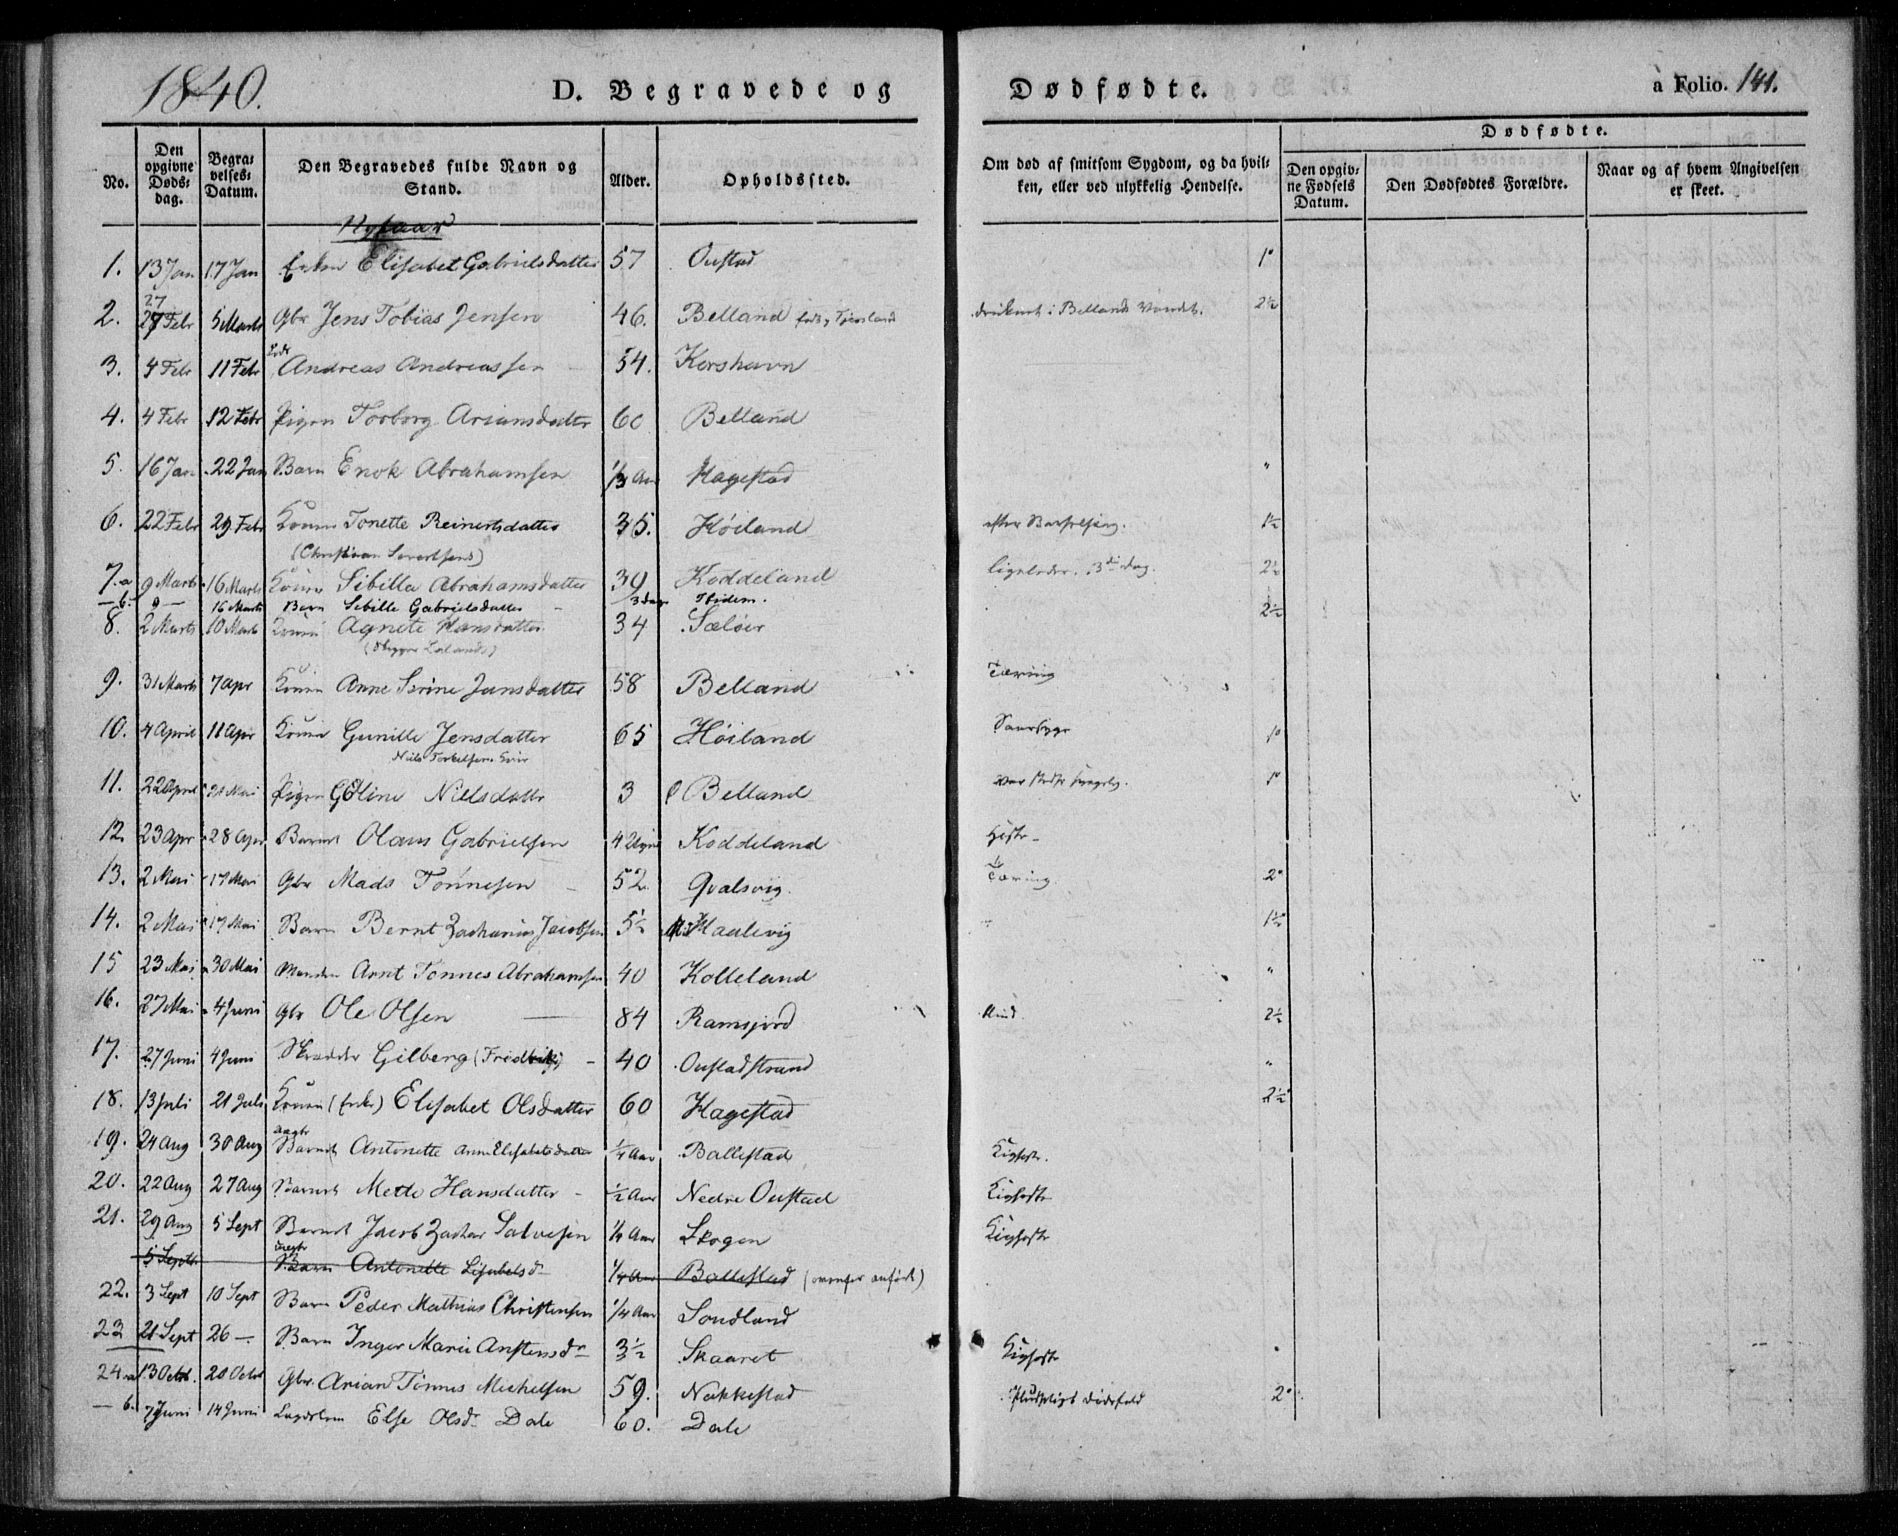 1840.
D. Begravede og Dødfødte.
a Folio. 141.
No.
Den opgivne Døds-dag.
Begra-velses-Datum.
Den Begravedes fulde Navn og Stand.
Alder.
Opholdssted.
Om død af smitsom Sygdom, og da hvil-ken, eller ved ulykkelig Hendelse.
Dødfødte.
Den opgiv-ne Fødsels Datum.
Den Dødfødtes Forældre.
Naar og af hvem Angivelsen er skeet.
Nytaar
1. 13 Jan 17 Jan Enken Elisabet Gabrielsdatter 57 Oustad 1°
2. 27 Febr 5 Marts Gbr Jens Tobias Jensen 46. Belland druknet i Bellands Vandet. 2½
3. 4 Febr 11 Febr Andreas Andreassen 54. Korshavn
4. 4 Febr 12 Febr Pigen Torborg Ariansdatter 60 Belland
5. 16 Jan 22 Jan Barn Enok Abrahamsen Aar Hagestad "
6. 22 Febr 29 Febr Konen Tonette Reinertsdatter 35. Høiland efter Barselseng. 1½
(Christian Sivertsens)
7. a 9 Marts 16 Marts Konen Sibille Abrahamsdatter 39 Koddeland ligeledes. 3die dag. 2½
— b. 9 — 16 Marts Barn Sibille Gabrielsdatter 3 dage Ibidem. 2½
8. 2 Marts 10 Marts Konen Agnete Hansdatter 34 Sæløer
9. 31 Marts 7 Apr Konen Anne Serine Jansdatter 58 Belland Tæring
10. 4 April 11 Apr Konen Gunille Jensdatter 65 Høiland 1°
Niels Torkelsens Enke
11. 22 April 21 Mai Pigen Goline Nielsdattr 3 Belland 1°
12. 23 Apr 28 Apr Barnet Olaus Gabrielsen 4 Uger Koddeland Hoste
13. 2 Mai 17 Mai Gbr Mads Tønnesen 52 Qvalsvig. Tæring. 2°
14. 2 Mai 17 Mai Barn Bernt Zacharias Jacobsen 5½ Maalevig 1½
15 23 Mai 30 Mai Manden Arnt Tønnes Abrahamsen 40 Kolleland "
16. 27 Mai 4 Juni Gbr Ole Olsen 84 Ramsjord Blind 2½
17. 27 Juni 4 Juni Skrædder Gilberg (Fredrik) 40 Oustadstrand "
18. 13 Juli 21 Juli Konen (Enke) Elisabet Olsdatter 60 Hagestad 2½
19. 24 Aug 30 Aug Barnet Antonette Anne Elisabetsdatter ¼ Aar Ballestad Kighoste.
20. 22 Aug 27 Aug Barnet Mette Hansdatter ½ Aar Nedre Oustad Kighoste
21. 29 Aug 5 Sept Barnet Jacob Zachar Salvesen ¼ Aar Skogen Kighoste
5 Sept Barn Antonette Lisabetsdr ¼ Aar Ballestad (ovenfor anført)
22. 3 Sept 10 Sept Barn Peder Mathias Christensen ¼ Aar Sondland
23 21 Sept 26 — Barn Inger Marie Anstensdr 3½ Skaaret Kighoste
24. a 13 Octb. 20 Octbr Gbr. Arian Tønnes Michelsen 59. Nakkestad Pludseligt Dødsfald 2°
— b. 7 Juni 14 Juni Lægdslem Else Olsdr Dale 60. Dale